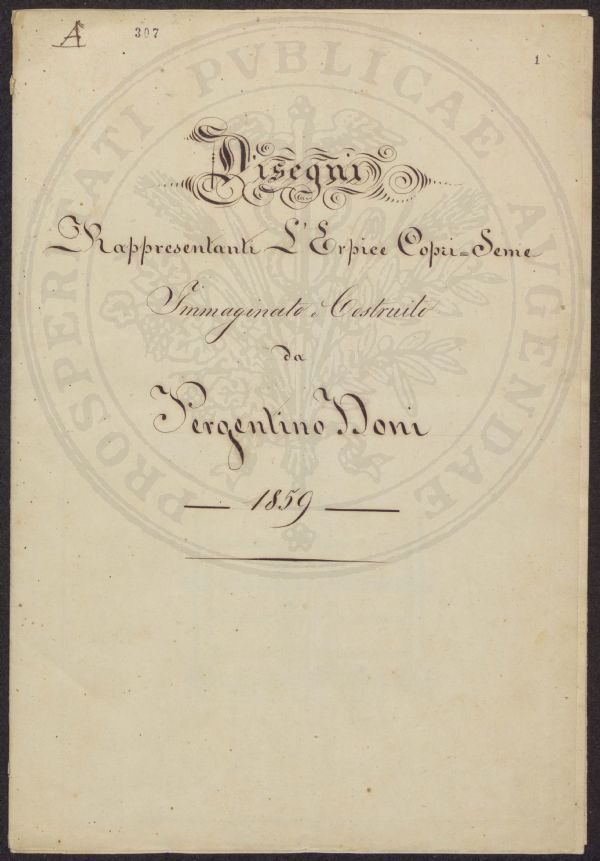 A
307
1
Disegni
Rappresentanti L'Erpice Copri-Seme
Immaginato e Costruito
da
Pergentino Doni
1859
PROSPERITATI PVBLICAE AVGENDAE